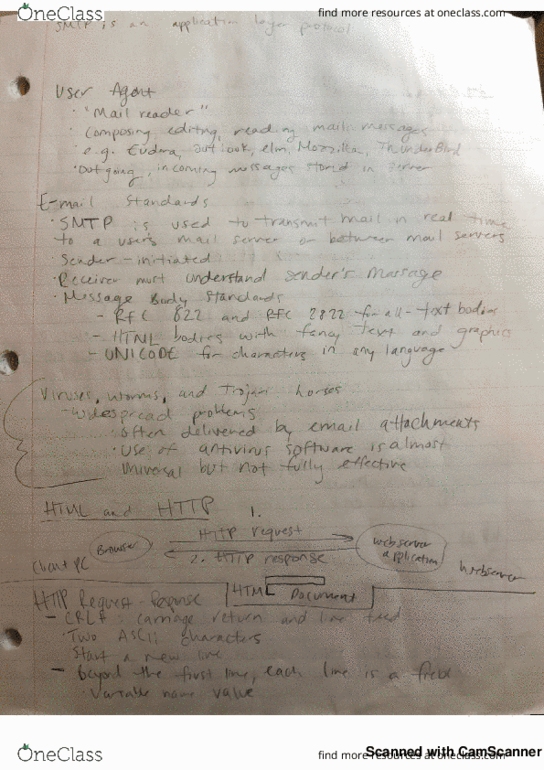 OneClass
find more resources at oneclass.com
SMTP is an application layer protocol
User Agent
· "Mail reader"
· Composing editing, reading mail messages
· e.g. Eudora, outlook, elm, Mozzilla, ThunderBird
· Outgoing, incoming messages stored in server
E-mail Standards
· SMTP is used to transmit mail in real time
to a user's mail server or between mail servers
· Sender-initiated
· Receiver must understand sender's message
· Message Body Standards
- RFC 822 and RFC 2822 for all-text bodies
- HTML bodies with fancy text and graphics
- UNICODE for characters in any language
Viruses, worms, and Trojan horses
- widespread problems
· Often delivered by email attachments
· Use of antivirus software is almost
universal but not fully effective
HTML and HTTP
1.
HTTP request
Browser
webserver application
2. HTTP response
Client PC
Webserver
HTTP Request-Response
HTML Document
- CRLF: carriage return and line feed
· Two ASCII characters
Start a new line
- beyond the first line, each line is a
· Variable name value
OneClass
find more resources at oneclass.com
Scanned with CamScanner